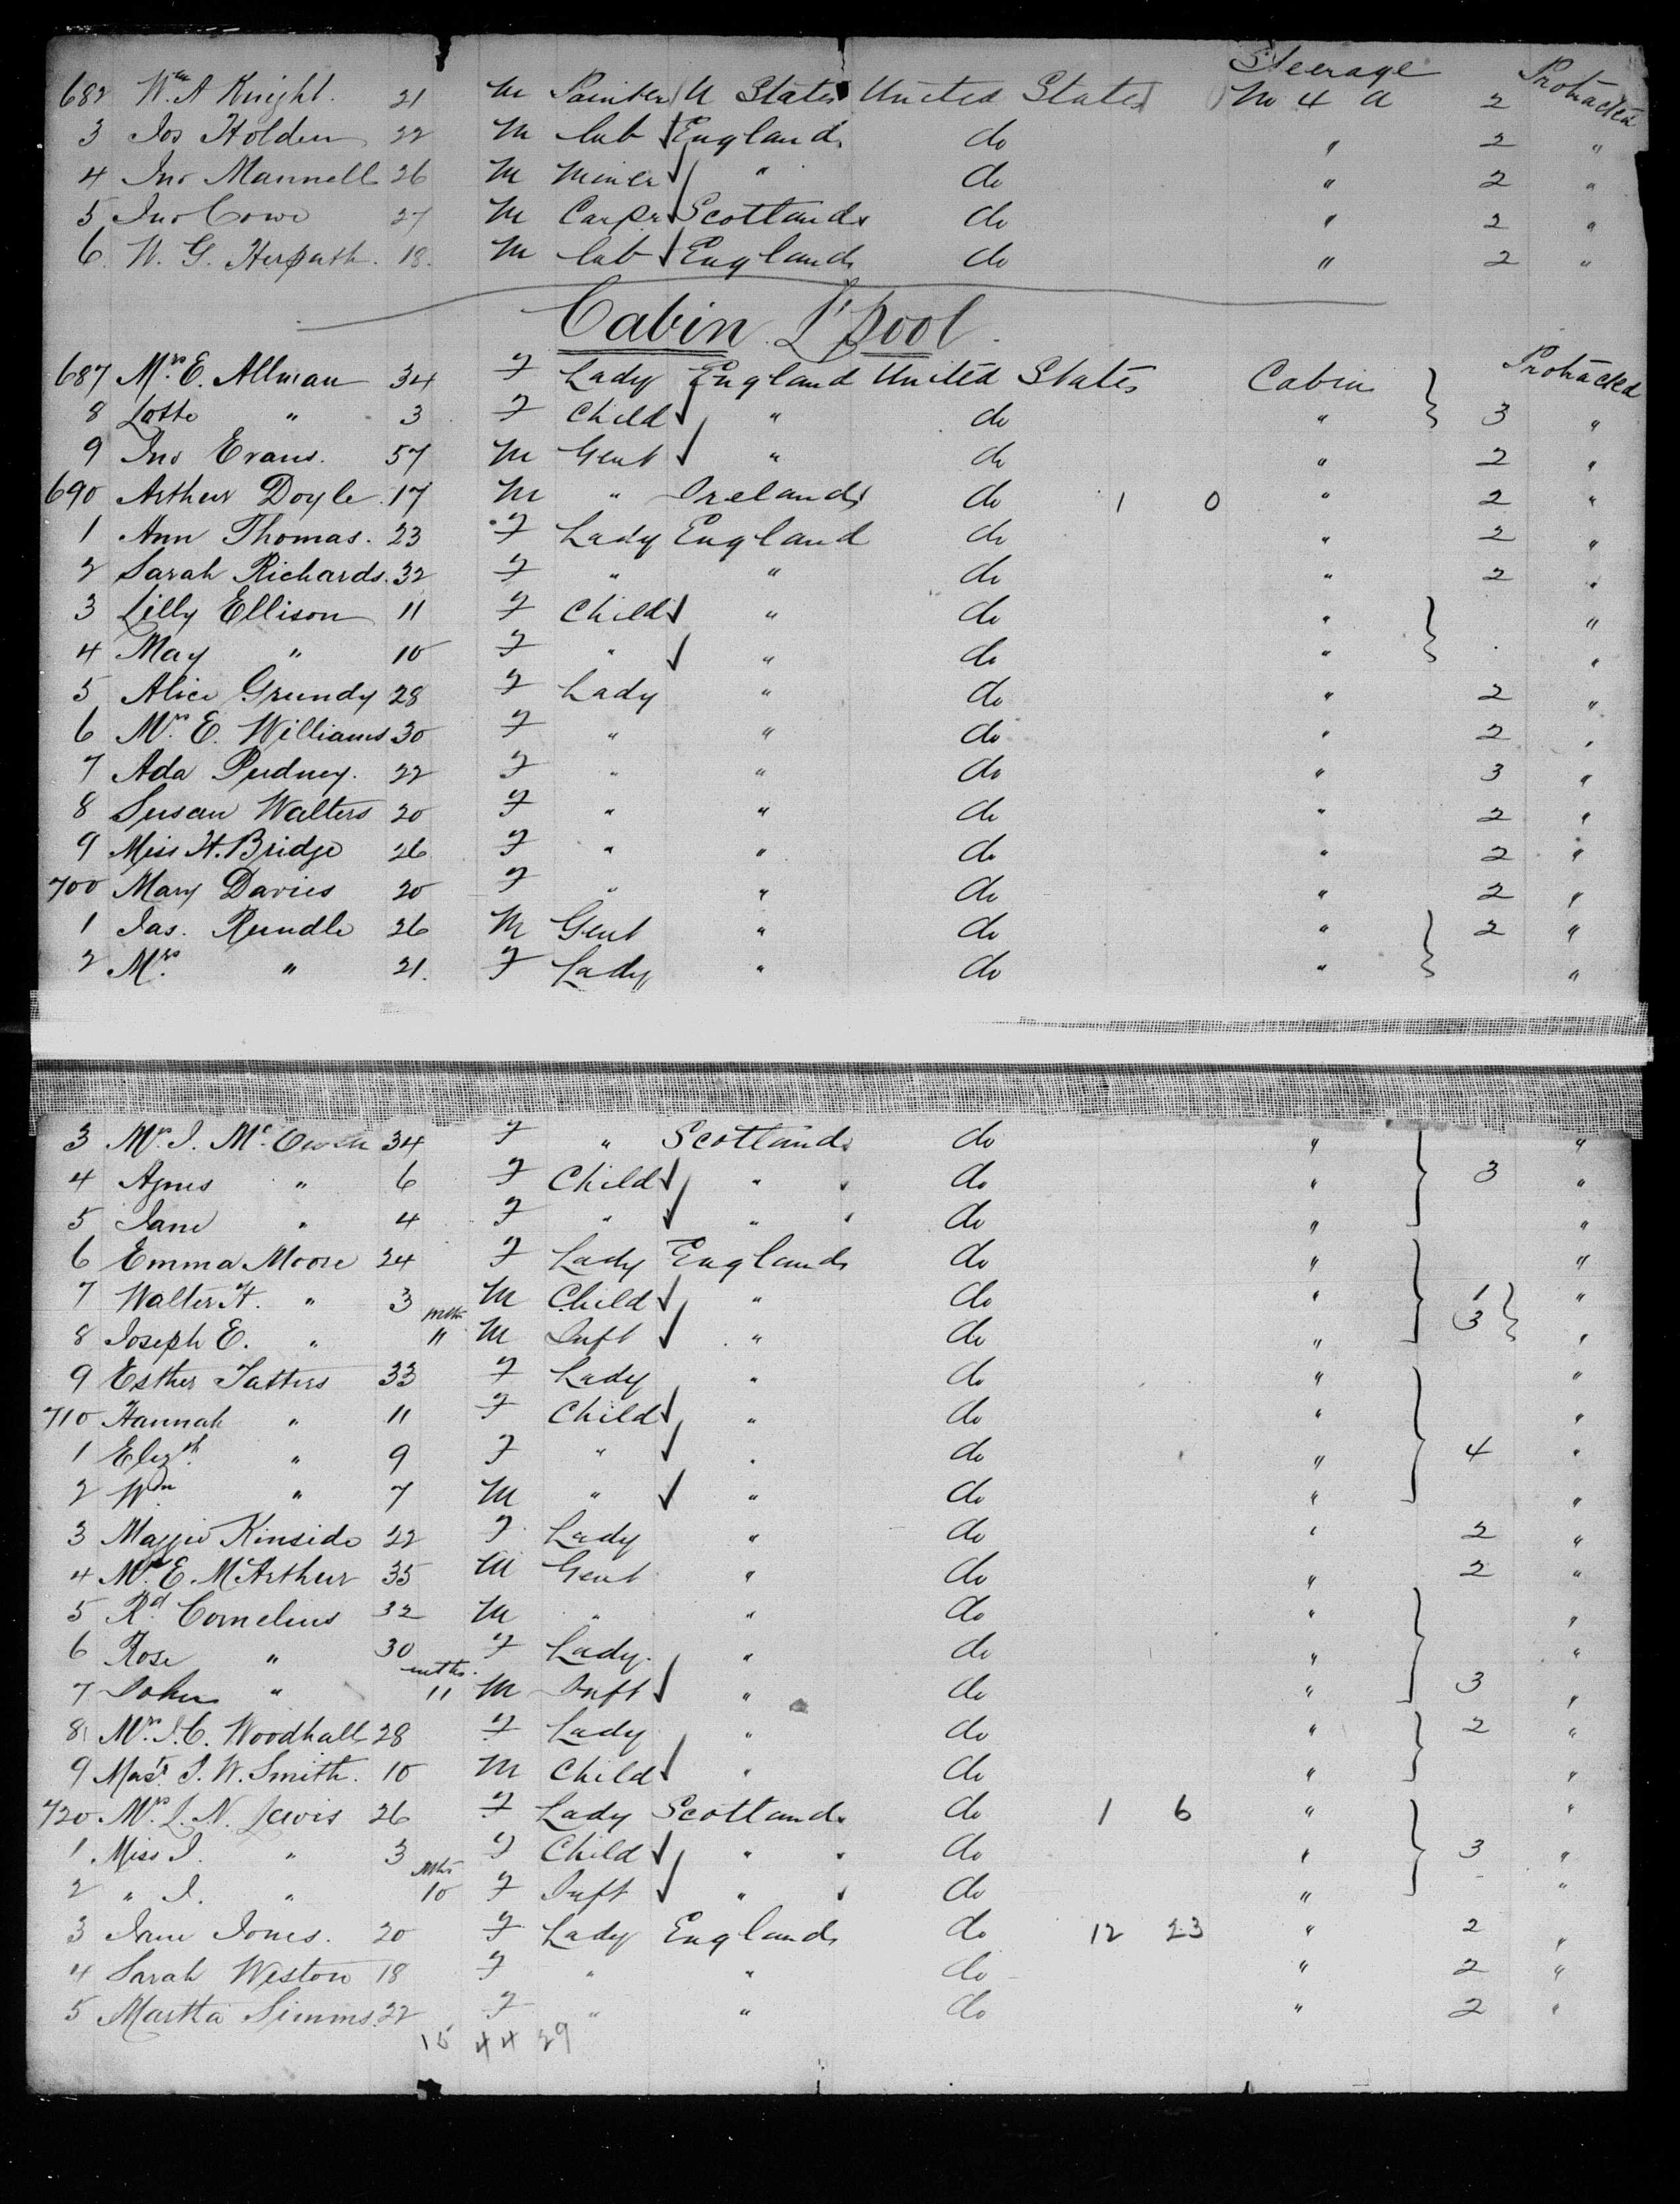 Steerage Protracted
682 Wm A Knight. 21 M Painter U States United States No 4 A 2
3 Jos Holden 22 M lab England do " 2 "
4 Jno Mannell 26 M Miner " do " 2 "
5 Jno Cowe 27 M Carpr Scotland do " 2 "
6 W. G. Herpath. 18. M lab England do " 2 "
Cabin L'pool
687 Mrs E. Allman 34 F Lady England United States Cabin Protracted
8 Lotte " 3 F Child " do " 3 "
9 Jno Evans. 57 M Gent " do " 2 "
690 Arthur Doyle. 17 M " Ireland do 1 0 " 2 "
1 Ann Thomas. 23 F Lady England do " 2 "
2 Sarah Richards. 32 F " " do " 2 "
3 Lilly Ellison 11 F Child " do " "
4 May " 10 F " " do " "
5 Alice Grundy 28 F Lady " do " 2 "
6 Mrs E. Williams 30 F " " do " 2 "
7 Ada Pudney. 22 F " " do " 3 "
8 Susan Walters 20 F " " do " 2 "
9 Miss H. Bridge 26 F " " do " 2 "
700 Mary Davies 20 F " " do " 2 "
1 Jas. Rundle 26 M Gent " do " 2 "
2 Mrs " 21. F Lady " do " "
3 Mrs J. Mc Owen 34 F " Scotland do " "
4 Agnes " 6 F Child " do " 3 "
5 Jane " 4 F " " do " "
6 Emma Moore 24 F Lady England do " "
7 Walter H. " 3 M Child " do " 1 "
8 Joseph E. " mths 11 M Inft " do " 3 "
9 Esther Tatters 33 F Lady " do " "
710 Hannah " 11 F Child " do " "
1 Elizth. " 9 F " " do " 4 "
2 Wm " 7 M " " do " "
3 Maggie Kinside 22 F Lady " do " 2 "
4 Mr E. McArthur 35 M Gent " do " 2 "
5 Rd Cornelius 32 M " " do " "
6 Rose " 30 F Lady. " do " "
7 John " mths. 11 M Inft " do " 3 "
8 Mrs J. C. Woodhall 28 F Lady " do " 2 "
9 Mastr J. W. Smith. 10 M Child " do " "
720 Mrs J. N. Lewis 26 F Lady Scotland do 1 6 " "
1 Miss J. " 3 F Child " do " 3 "
2 " J. " Mths 10 F Inft " do " "
3 Jane Jones. 20 F Lady England do 12 23 " 2 "
4 Sarah Weston 18 F " " do " 2 "
5 Martha Simms. 22 F " " do " 2 "
15 44 29